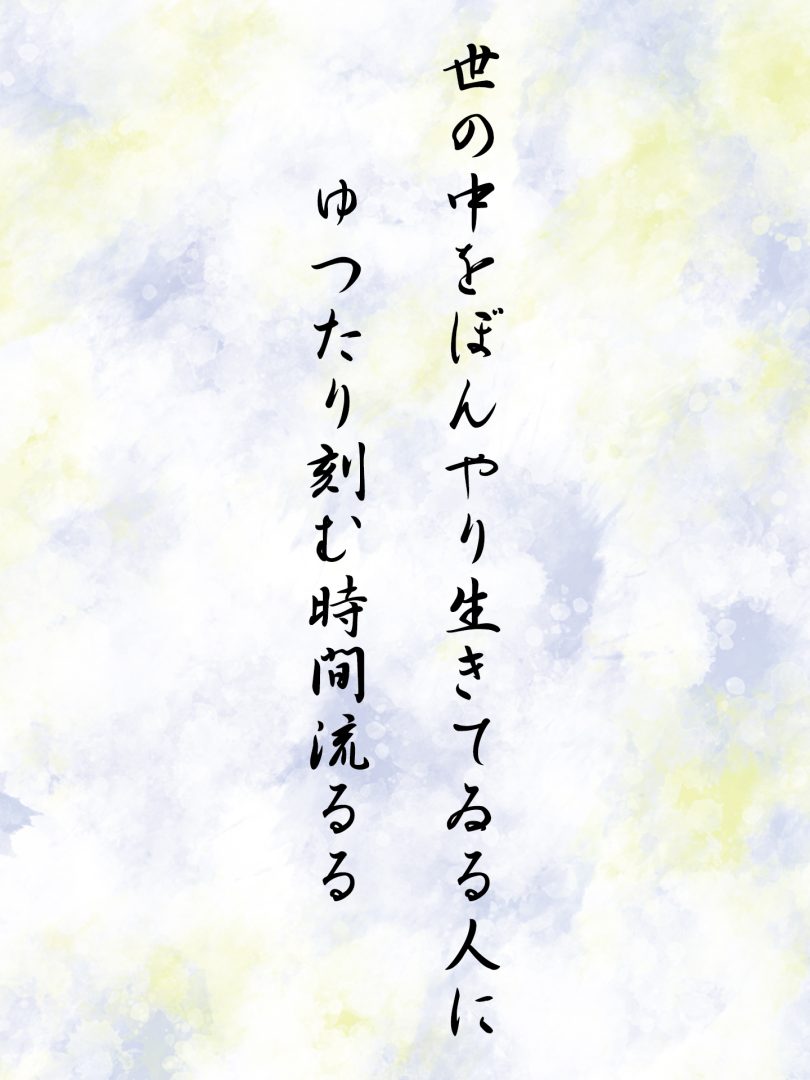 世の中をぼんやり生きてゐる人に
ゆつたり刻む時間流るる